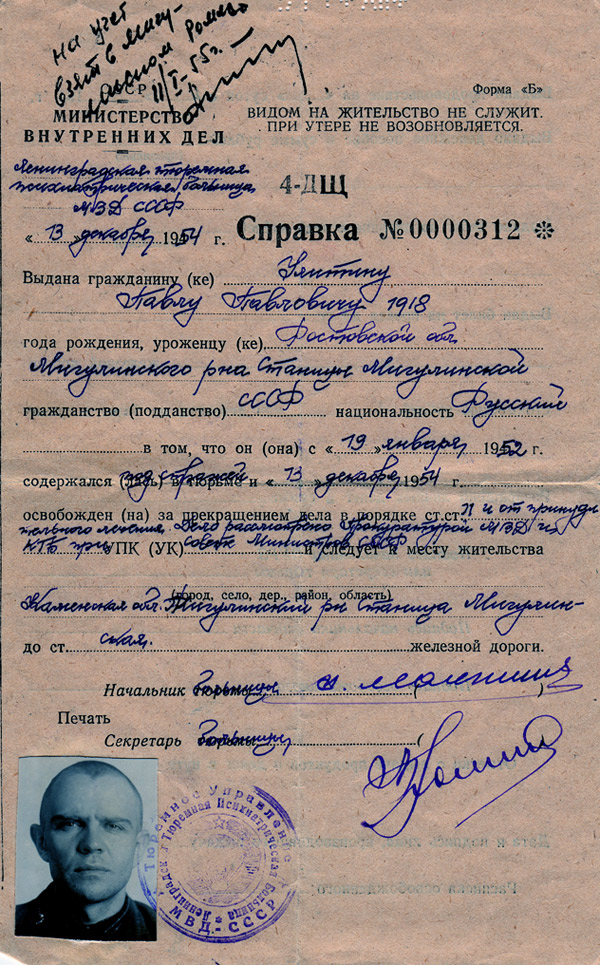 на учет
взят в Мигу-
11/I-55г.
СССР
МИНИСТЕРСТВО
ВНУТРЕННИХ ДЕЛ
Форма «Б»
ВИДОМ НА ЖИТЕЛЬСТВО НЕ СЛУЖИТ.
ПРИ УТЕРЕ НЕ ВОЗОБНОВЛЯЕТСЯ.
Ленинградская тюремная
психиатрическая больница
МВД СССР
4-ДЩ
« 13 » декабря 1954 г. Справка № 0000312 *
Выдана гражданину (ке) Улитину
Павлу Павловичу 1918
года рождения, уроженцу (ке) Ростовской обл.
Мигулинского р-на Станицы Мигулинской
гражданство (подданство) СССР национальность Русский
в том, что он (она) с « 19 » января 1952 г.
содержался (лась) в тюрьме под стражей и « 13 » декабря 1954 г.
освобожден (на) за прекращением дела в порядке ст.ст. 11 и от принуди
тельного лечения. Дело рассмотрено Прокуратурой МВД и
КГБ при УПК (УК) Совете Министров СССР и следует к месту жительства
(город, село, дер., район, область)
Каменская обл. Мигулинский р-н Станица Мигулин-
до ст. ская. железной дороги.
Начальник больницы
Печать
Секретарь больницы
Тюремное Управление
Ленинградская Тюремная Психиатрическая Больница
МВД-СССР